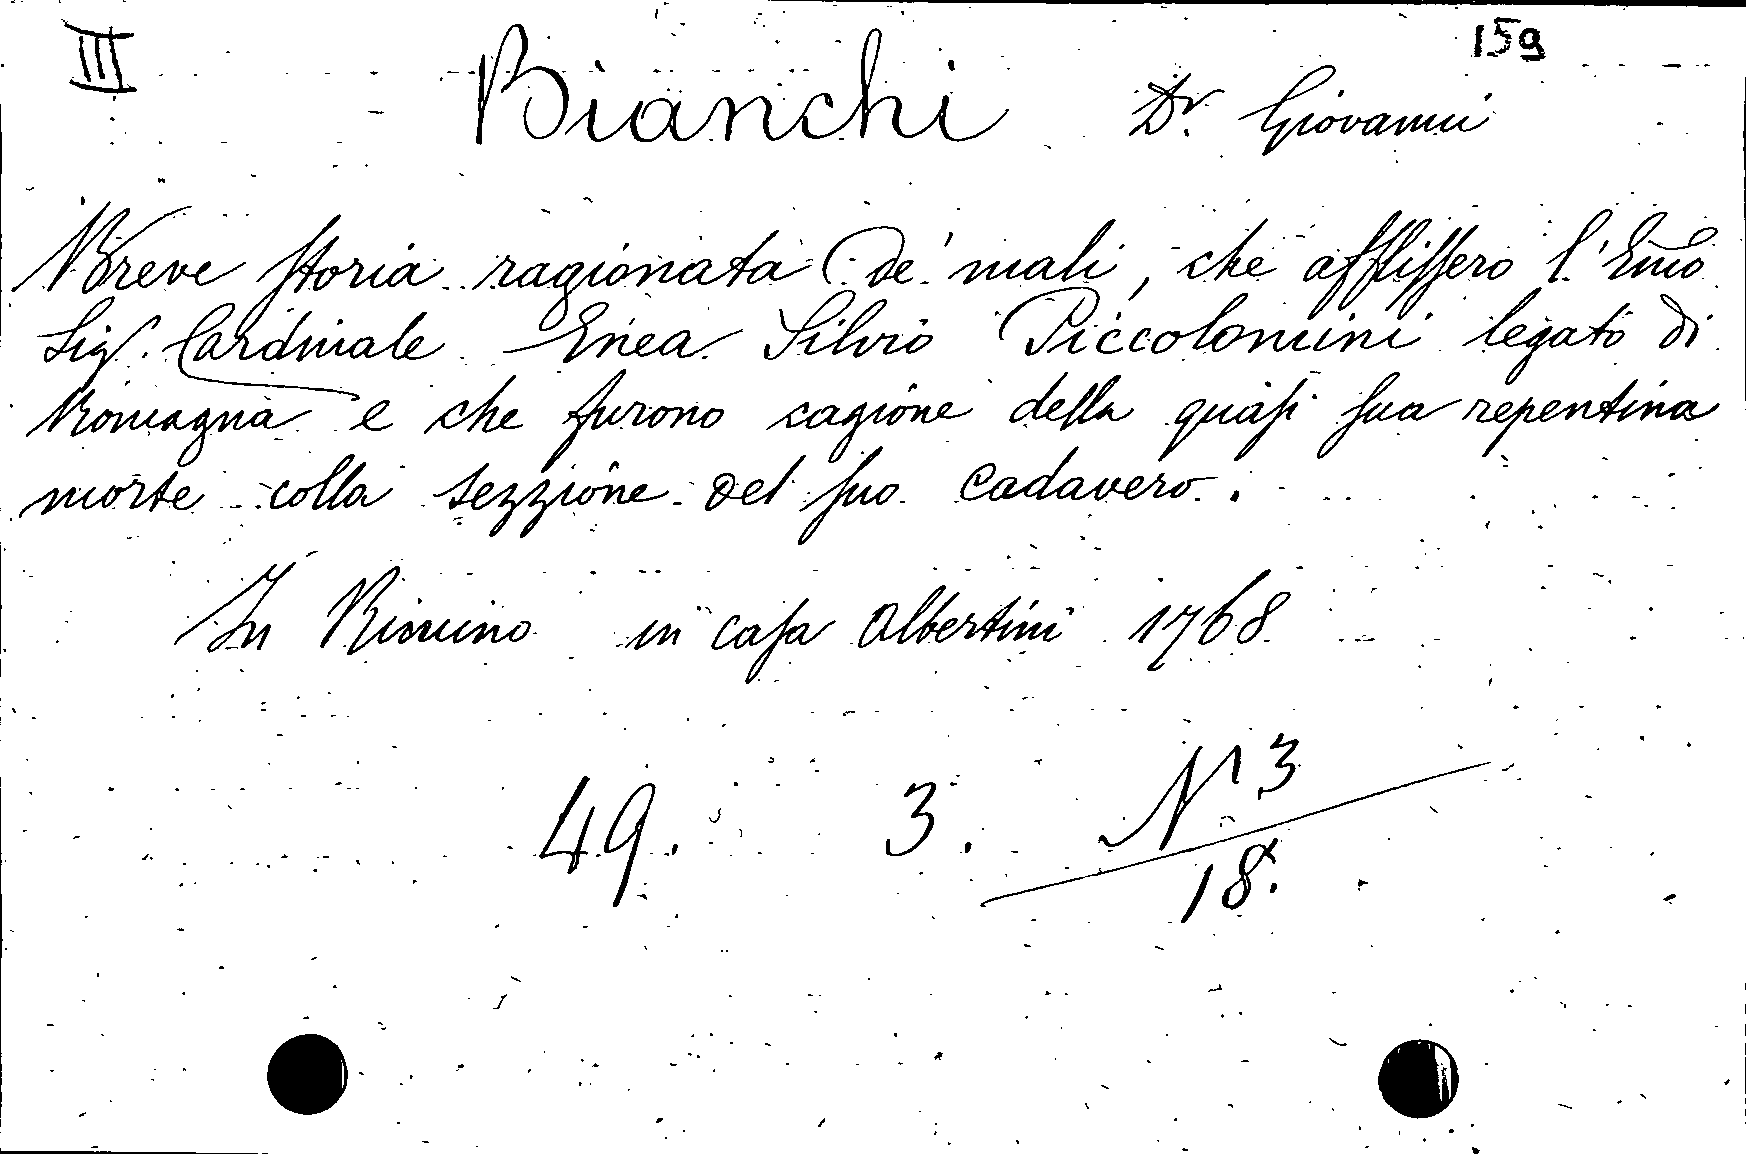 III 159
Bianchi Dr. Giovanni
Breve storia ragionata de' mali, che afflissero l'Emo
Sig. Cardinale Enea Silvio Piccolomini legato di
Romagna e che furono cagione della quasi sua repentina
morte colla sezzione del suo cadavero.
In Rimino in casa Albertini 1768
49. 3. N 3
18.